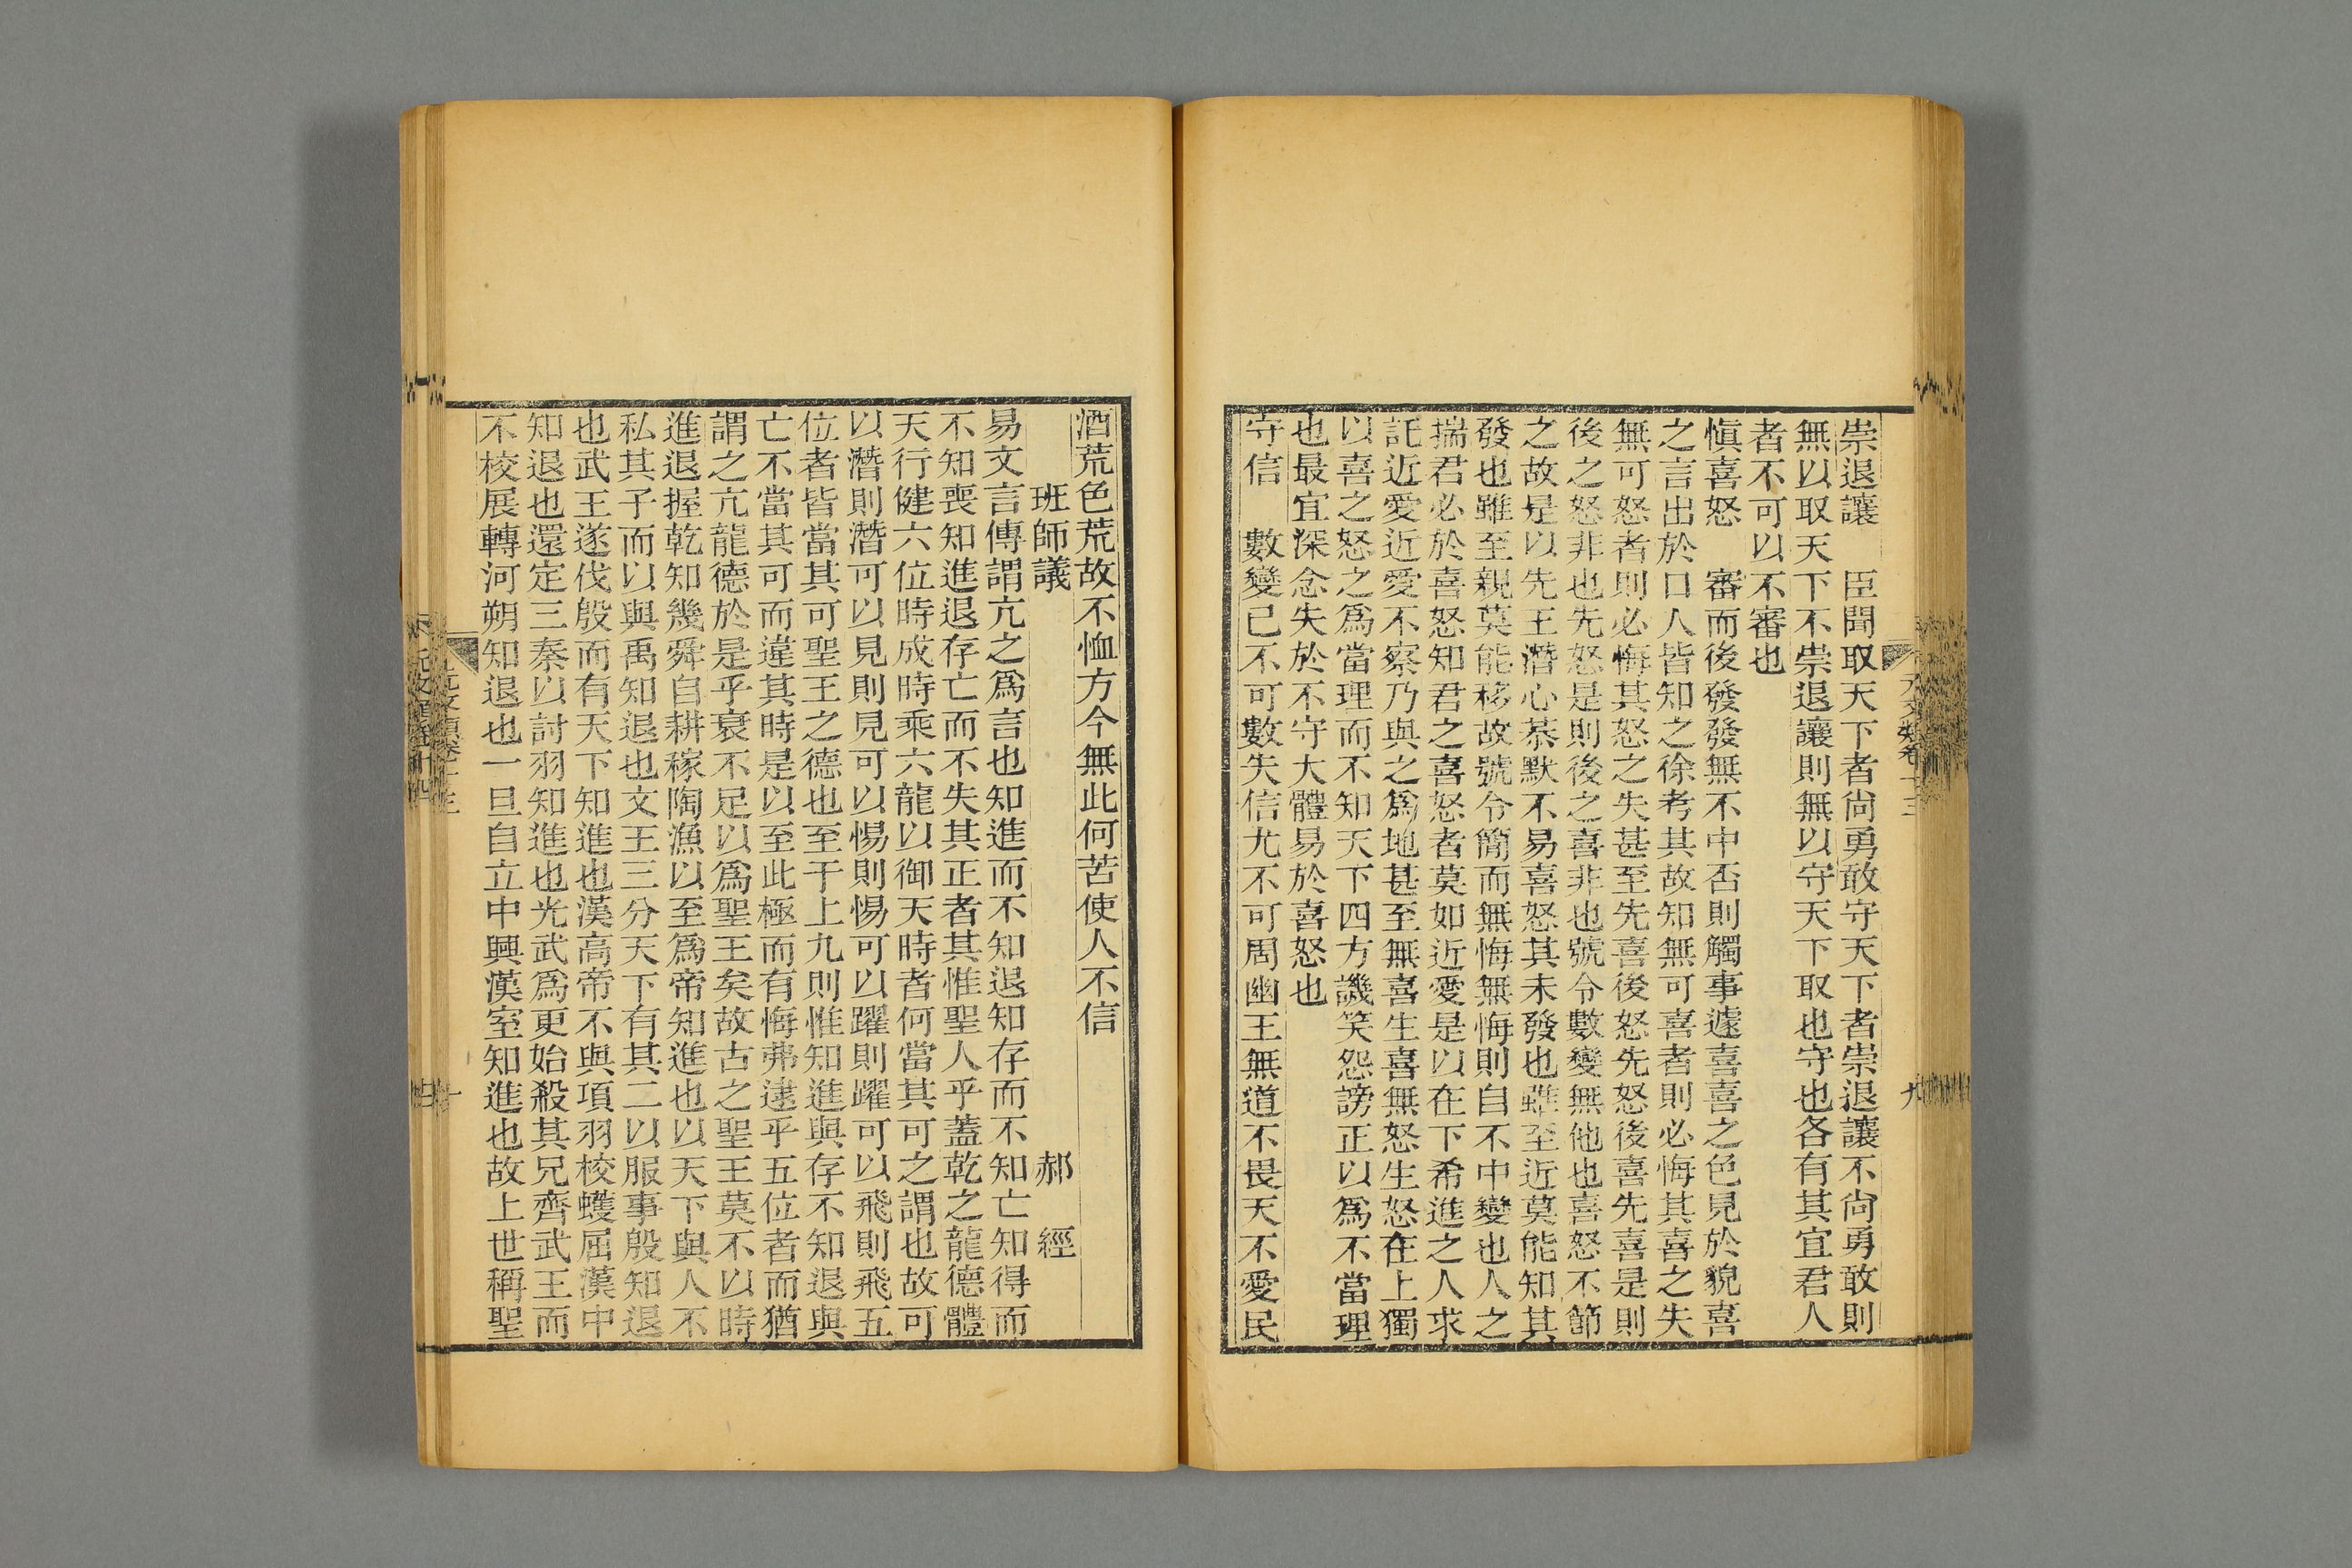 崇退讓　臣聞取天下者尙勇敢守天下者崇退讓不尙勇敢則
無以取天下不崇退讓則無以守天下取也守也各有其宜君人
者不可以不審也
愼喜怒　審而後發發無不中否則觸事遽喜喜之色見於貌喜
之言出於口人皆知之徐考其故知無可喜者則必悔其喜之失
無可怒者則必悔其怒之失甚至先喜後怒先怒後喜先喜是則
後之怒非也先怒是則後之喜非也號令數變無他也喜怒不節
之故是以先王潛心恭默不易喜怒其未發也雖至近莫能知其
發也雖至親莫能移故號令簡而無悔無悔則自不中變也人之
揣君必於喜怒知君之喜怒者莫如近愛是以在下希進之人求
託近愛近愛不察乃與之爲地甚至無喜生喜無怒生怒在上獨
以喜之怒之爲當理而不知天下四方譏笑怨謗正以爲不當理
也最宜深念失於不守大體易於喜怒也
守信　數變已不可數失信尤不可周幽王無道不畏天不愛民
酒荒色荒故不恤方今無此何苦使人不信
班師議　郝經
易文言傳謂亢之爲言也知進而不知退知存而不知亡知得而
不知喪知進退存亡而不失其正者其惟聖人乎蓋乾之龍德體
天行健六位時成時乘六龍以御天時者何當其可之謂也故可
以潛則潛可以見則見可以惕則惕可以躍則躍可以飛則飛五
位者皆當其可聖王之德也至于上九則惟知進與存不知退與
亡不當其可而違其時是以至此極而有悔弗逮乎五位者而猶
謂之亢龍德於是乎衰不足以爲聖王矣故古之聖王莫不以時
進退握乾知幾舜自耕稼陶漁以至爲帝知進也以天下與人不
私其子而以與禹知退也文王三分天下有其二以服事殷知退
也武王遂伐殷而有天下知進也漢高帝不與項羽校蠖屈漢中
知退也還定三秦以討羽知進也光武爲更始殺其兄齊武王而
不校展轉河朔知退也一旦自立中興漢室知進也故上世稱聖